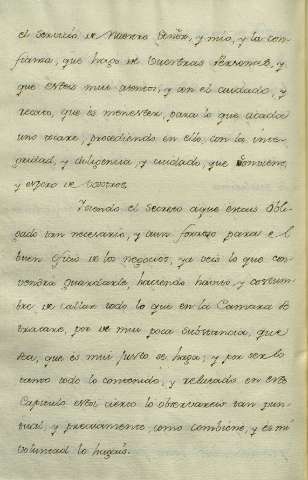 el servicio de Nuestro Señor, y mio, y la con-
fianza, que hago de Vuestras Personas, y
que esteis mui atentos, y con el cuidado, y
recato, que es menester, para lo que acada
uno tocare, procediendo en ello, con la inte-
gridad, y diligencia, y cuidado, que Combiene,
y espero de Vosotros.
Siendo el Secreto aque estais Obli-
gado tan necesario, y aun forzoso para el
buen Oficio de los negocios, ya veis lo que con-
vendra guardarle, haciendo havito, y costum-
bre de callar todo lo que en la Camara se
tratare, por de mui poca substancia, que
sea, que es mui justo se haga; y por ser lo
tanto todo lo contenido, y referido en este
Capitulo estoi cierto lo observareis tan pun-
tual, y precisamente, como combiene, y es mi
voluntad lo hagais.